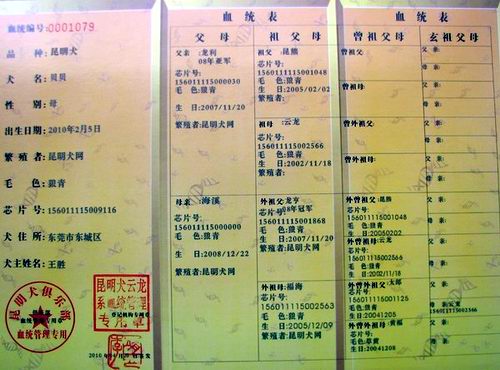 血统编号:0001079
品 种: 昆明犬
犬 名: 贝贝
性 别: 母
出生日期: 2010年2月5日
繁殖者: 昆明犬网
毛 色: 狼青
芯片号: 156011115009116
犬住所: 东莞市东城区
犬主姓名: 王胜
昆明犬俱乐部
血统管理专用
昆明犬云龙
系血统管理
专用章
登记机构专用章
血统表
父母
祖父母
父亲:龙利
08年亚军
芯片号:
1560111115000030
毛 色:狼青
生 日:2007/11/20
繁殖者:昆明犬网
母亲:海溪
芯片号:
1560111115000000
毛 色:狼青
生 日:2008/12/22
繁殖者:昆明犬网
祖父:昆熊
芯片号:
1560111115001048
毛 色:狼青
生 日:2005/02/02
繁殖者:
祖母:云龙
芯片号:
1560111115002566
毛 色:狼青
生 日:2002/11/18
繁殖者:昆明犬网
外祖父:龙亨
08年冠军
芯片号:
1560111115001868
毛 色:狼青
生 日:
繁殖者:昆明犬网
外祖母:福海
芯片号:
1560111115002563
毛 色:狼青
生 日:2005/12/09
繁殖者:昆明犬网
血统表
曾祖父母
玄祖父母
曾祖父:
曾祖母:
曾外祖父:
曾外祖母:
外曾祖父:昆熊
芯片号:
1560111115001048
毛 色:狼青
生 日:20050202
外曾祖母:云龙
芯片号:
1560111115002566
毛 色:狼青
生 日:2002/11/18
外曾外祖父:太郎
芯片号:
1560111115001125
毛 色:狼青
生 日:20041208
外曾外祖母:黄福
芯片号:
毛 色:草黄
生 日:20041208
父亲:
母亲:
父亲:
母亲:
父亲:
母亲:
父亲:
母亲:
父亲:
母亲:
父亲:
母亲:
父亲: